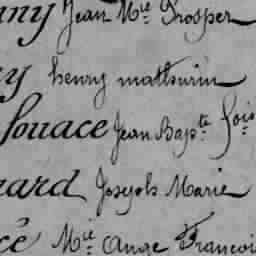 nny Jean Mie Prosper
y henry mathurin
fouace Jean Bapte fois
nard Joseph Marie
cé Mie Ange Francoi